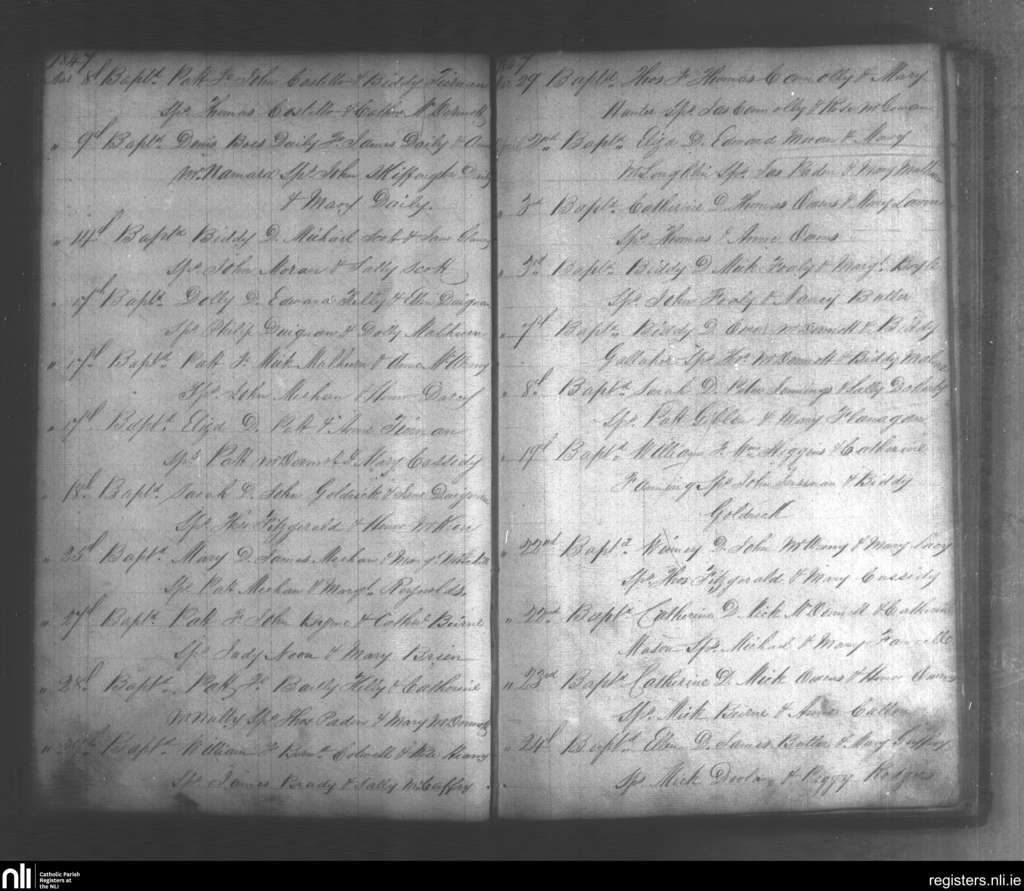 1847
Mar 8th Baptd. Patt F. John Costello & Biddy Tiernan
Sps. Thomas Costello & Cathne McDermott
" 9th Baptd. Denis Bres Daily F. James Daily &
McNamara Sps. John Skiffington Daily
& Mary Daily.
" 14th Baptd. Biddy D. Michael Scott & Jane
Sps. John Moran & Sally Scott
" 17th Baptd. Dolly D. Edward Filly & Ellen Duignan
Sps. Philip Duignan & Dolly Mulhern
" 17th Baptd. Patt F. Mick Mulhern & Anne
Sps. John Meehan & Honor Darcy
" 17th Baptd. Eliza D. Patt & Anne Tiernan
Sps. Patt McDermott & Mary Cassidy
" 18th Baptd. Sarah D. John Goldrick & Jane Duignan
Sps. Thos Fitzgerald & Honor McKeon
" 25th Baptd. Mary D. James Meehan & Mary
Sps. Patt Meehan & Margt. Reynolds
" 27th Baptd. Patt F. John & Cathne Beirne
Sps. Judy Noon & Mary Brien
" 28th Baptd. Patt F. Bartly Filly & Catherine
McNulty Sps. Thos Paden & Mary McDermott
" Baptd. William F. & Keary
Sps. James Brady & Sally McCaffry
1847
29 Baptd. Thos F. Thomas Connolly & Mary
Hunter Sps. Jas Connolly & Rose McGowan
April 2nd Baptd. Eliza D. Edward Moran & Mary
McLoughlin Sps. Jas Paden & Mary
" 3d Baptd. Catherine D. Thomas Owens & Mary
Sps. Thomas & Anne Owens
" 3rd Baptd. Biddy D. Mick Fealy & Margt. Boyle
Sps. John Fealy & Nancy Butler
" 7th Baptd. Biddy D. Owen McDermott & Biddy
Gallaher Sps. Thos McDermott & Biddy
" 8th Baptd. Sarah D. Peter Jennings & Sally
Sps. Patt Gillen & Mary Flanagan
" 19th Baptd. William F. Wm Higgins & Catherine
Fleming Sps. John & Biddy
Goldrick
" 22nd Baptd. Winney D. John & Mary
Sps. Thos Fitzgerald & Mary Cassidy
" 22nd Baptd. Catherine D. Mick McDermott & Catherine
Mason Sps. Michael & Mary
" 23rd Baptd. Catherine D. Mick Owens & Honor
Sps. Mick Beirne & Anne
" 24th Baptd. Ellen D. James Butler & Mary
Sps. Mick Doolan & Peggy Rodgers
nli
Catholic Parish
Registers at
the NLI
registers.nli.ie